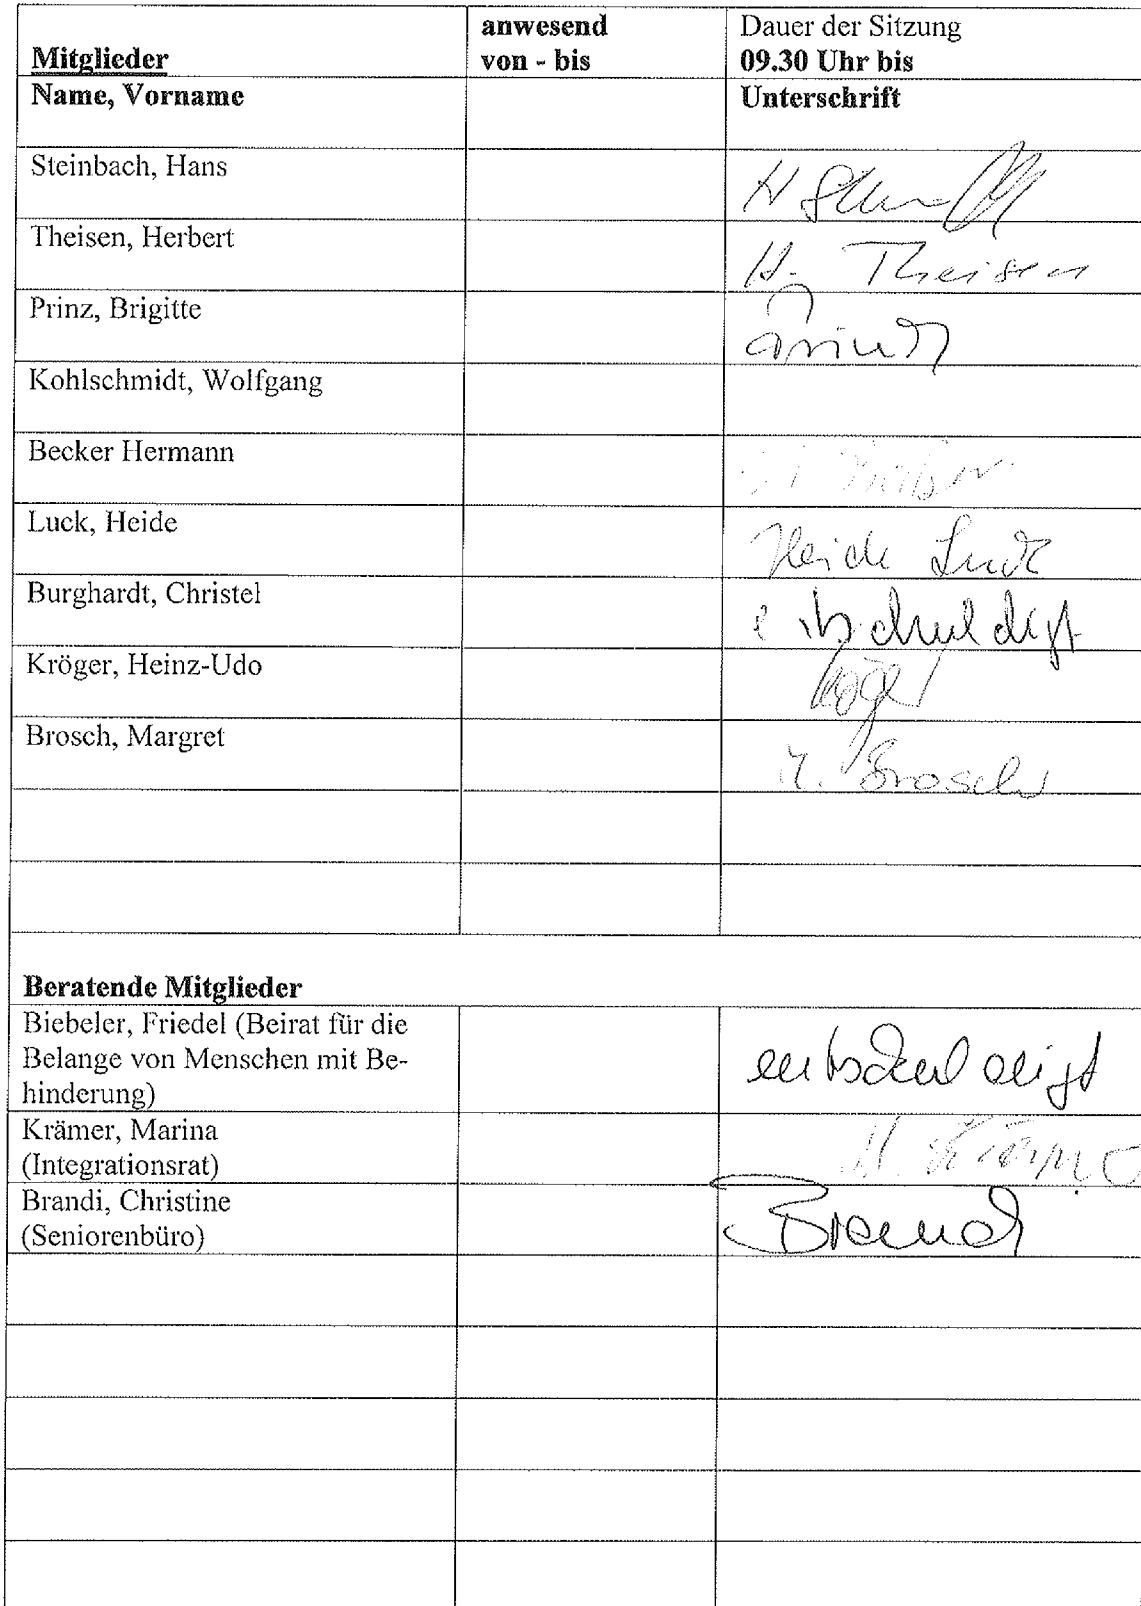 Mitglieder
anwesend
von - bis
Dauer der Sitzung
09.30 Uhr bis
Name, Vorname
Unterschrift
Steinbach, Hans
Theisen, Herbert
H. Theisen
Prinz, Brigitte
Kohlschmidt, Wolfgang
Becker Hermann
Luck, Heide
Heide Luck
Burghardt, Christel
entschuldigt
Kröger, Heinz-Udo
Brosch, Margret
M. Brosch
Beratende Mitglieder
Biebeler, Friedel (Beirat für die
Belange von Menschen mit Be-
hinderung)
entschuldigt
Krämer, Marina
(Integrationsrat)
Brandi, Christine
(Seniorenbüro)
Brandi